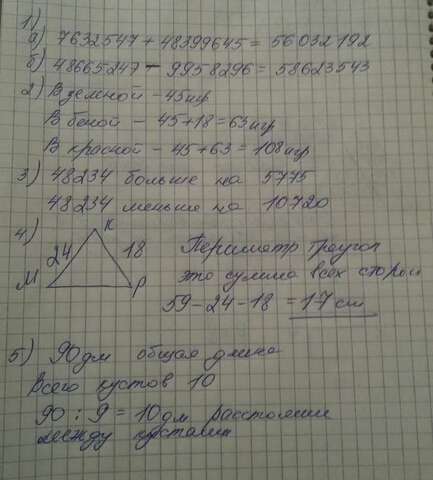 1)
а) 7632547 + 48399645 = 56032192
б) 48665247 - 9958296 = 58623543
2) В земной - 45 игр
В белой - 45 + 18 = 63 игр
В красной - 45 + 63 = 108 игр
3) 48234 больше на 5775
48234 меньше на 10720
4)
К
24
18
М
Р
Периметр треугол
это сумма всех сторон
59 - 24 - 18 = 17 см
5) 90 дм общая длина
Всего кустов 10
90 : 9 = 10 дм расстояние
между кустами